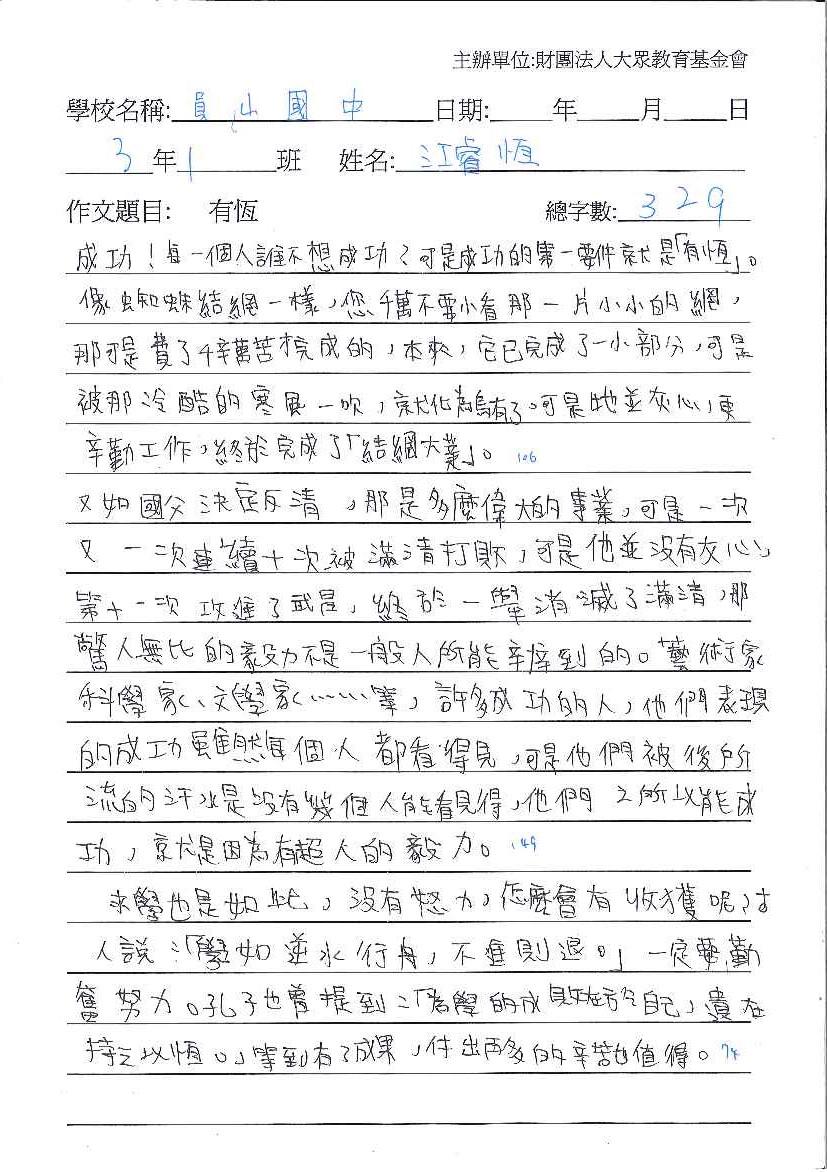 主辦單位:財團法人大眾教育基金會
學校名稱: 員山國中 日期: 年 月 日
3年1 班 姓名: 江睿恆
作文題目: 有恆 總字數: 329
成功！每一個人誰不想成功？可是成功的第一要件就是「有恆」。
像蜘蛛結網一樣，您千萬不要小看那一片小小的網，
那可是費了千辛萬苦才完成的，本來，它已完成了一小部分，可是
被那冷酷的寒風一吹，就化為烏有了。可是牠並灰心，更
辛勤工作，終於完成了「結網大業」。 106
又如國父決定反清，那是多麼偉大的事業，可是一次
又一次連續十次被滿清打敗，可是他並沒有灰心，
第十一次攻進了武昌，終於一舉消滅了滿清，那
驚人無比的毅力不是一般人所能辛得到的。藝術家
科學家、文學家……等，許多成功的人，他們表現
的成功雖然每個人都看得見，可是他們被後所
流的汗水是沒有幾個人能看見得，他們之所以能成
功，就是因為有超人的毅力。 149
求學也是如此，沒有怒力，怎麼會有收獲呢？古
人說：「學如逆水行舟，不進則退。」一定要勤
奮努力。孔子也曾提到：「為學的成敗在於自己，貴在
持之以恆。」等到有了成果，付出再多的辛苦也值得。 74